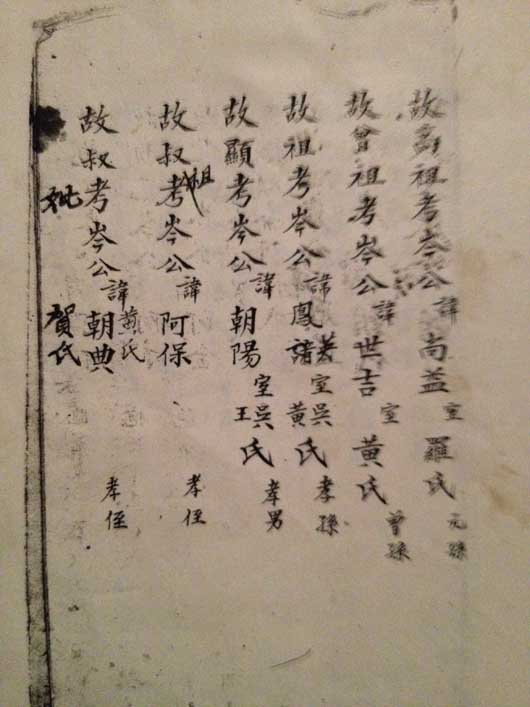 故高祖考岑公諱尚益室羅氏 元孫
故曾祖考岑公諱世吉室黃氏 曾孫
故祖考岑公諱鳳諸室吳黃氏 孝孫
故顯考岑公諱朝陽室吳王氏 孝男
故叔祖考岑公諱阿保 孝侄
故叔考岑公諱朝典 黃氏 孝侄
妣 賀氏